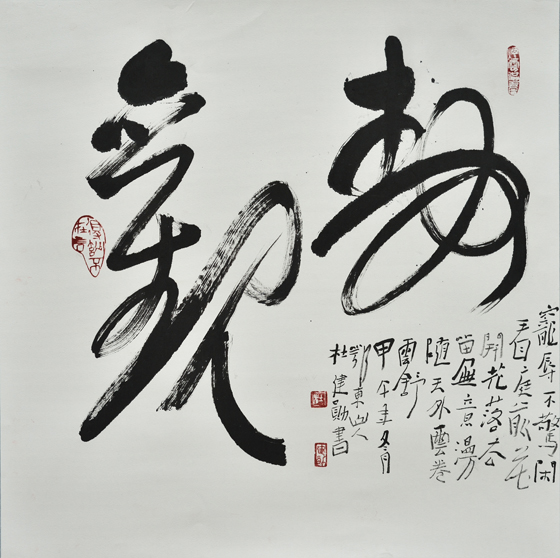 静觀
寵辱不驚闲
看庭前花
開花落去
留無意漫
随天外雲卷
雲舒
甲午年冬月
鄂東山人
杜建勛書